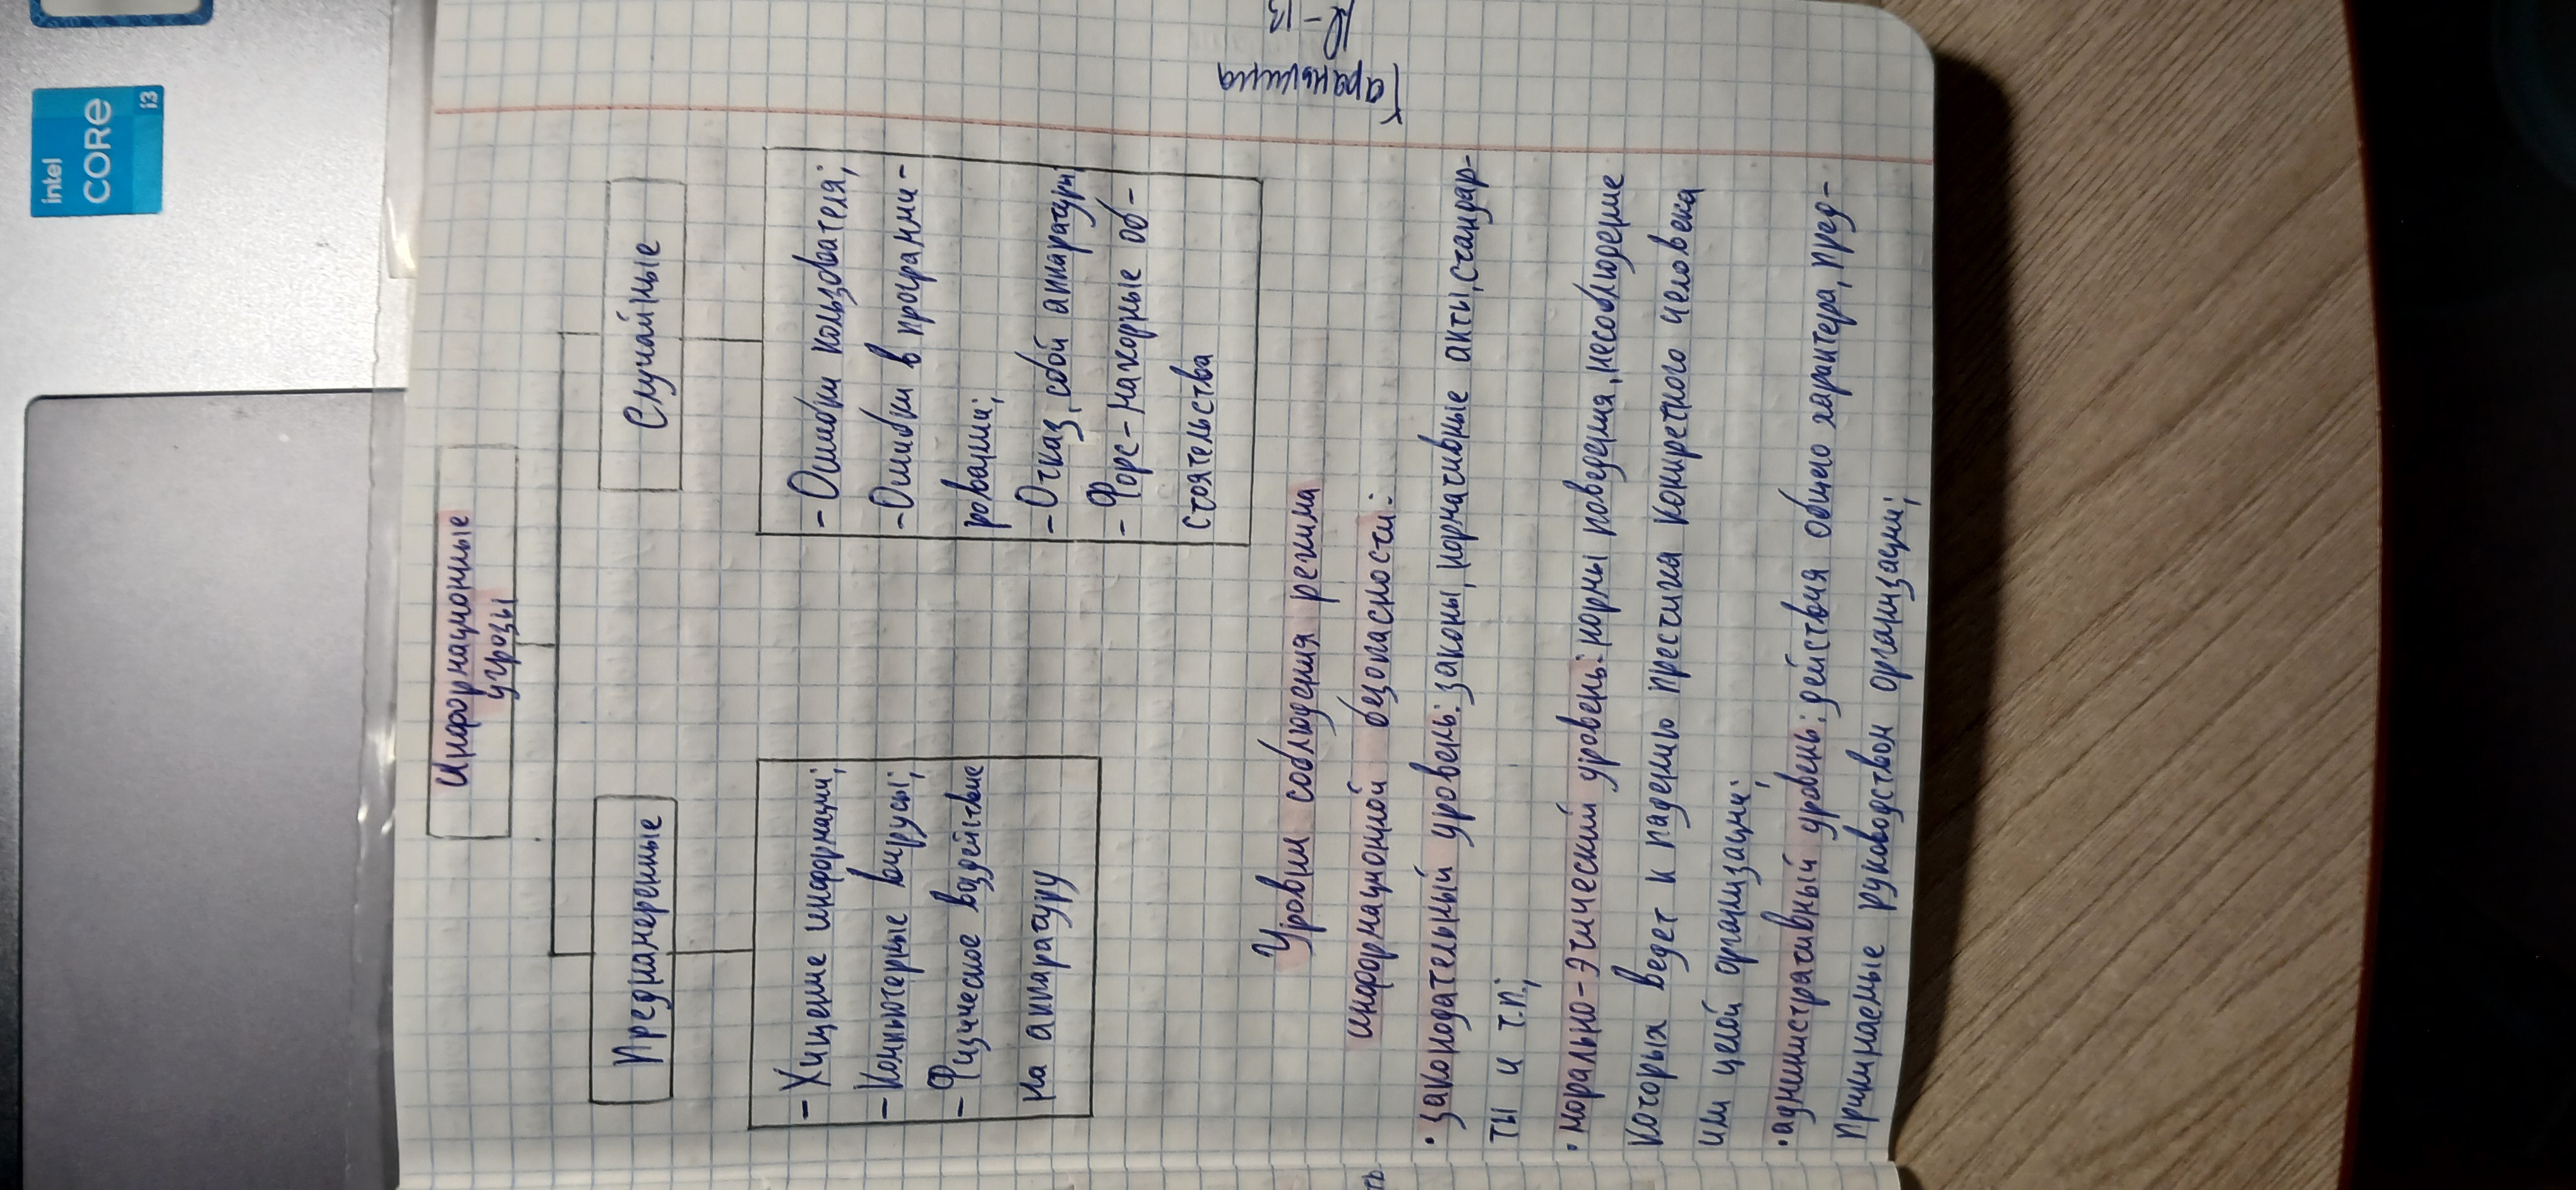 intel
CORE
i3
Информационные
угрозы
Преднамеренные
Случайные
- Хищение информации;
- Компьютерные вирусы;
- Физическое воздействие
на аппаратуру
- Ошибки пользователя;
- Ошибки в программи-
ровании;
- Отказ, сбой аппаратуры
- Форс-мажорные об-
стоятельства
Гараньшина
К-13
Уровни соблюдения режима
информационной безопасности:
• законодательный уровень: законы, нормативные акты, стандар-
ты и т.п.;
• морально-этический уровень: нормы поведения, несоблюдение
которых ведет к падению престижа конкретного человека
или целой организации;
• административный уровень: действия общего характера, пред-
принимаемые руководством организации;
ть